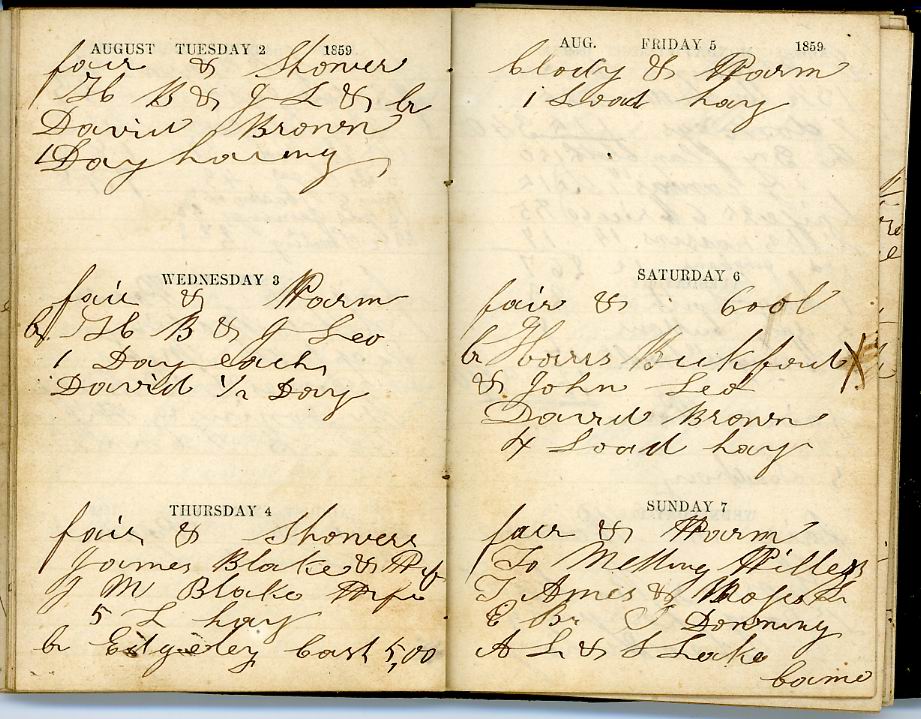 AUGUST TUESDAY 2 1859
fair & Shower
Hb B & J L & br
David Brown
1 Day haring
WEDNESDAY 3
fair & Warm
br Hb B & J Leo
1 Day each
David 1/2 Day
THURSDAY 4
fair & Showers
James Blake & Wife
J M Blake Wife
5 L hay
br Edgeley Cart 5,00
AUG. FRIDAY 5 1859
Clody & Warm
1 Load hay
SATURDAY 6
fair & Cool
br Harris Bickford X
& John Leo
David Brown
4 Load hay
SUNDAY 7
fair & Warm
To Metting
T Ames &
E Br J Downing
A L & S Lake
Came